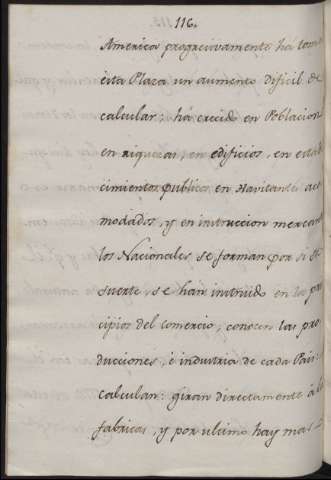 116.
America progresivamente há tom
esta Plaza un aumento dificil de
calcular; há crecido en Poblacion
en riquezas, en edificios, en estab
cimientos publicos en Havitantes aco
modados, y en intruccion mercant
los Nacionales se forman por si
suerte, se han intruido en los prin
cipios del comercio, conocen las pro
ducciones, é industria de cada Pais:
calculan: giran directamente á l
fabricas, y por ultimo hay mas